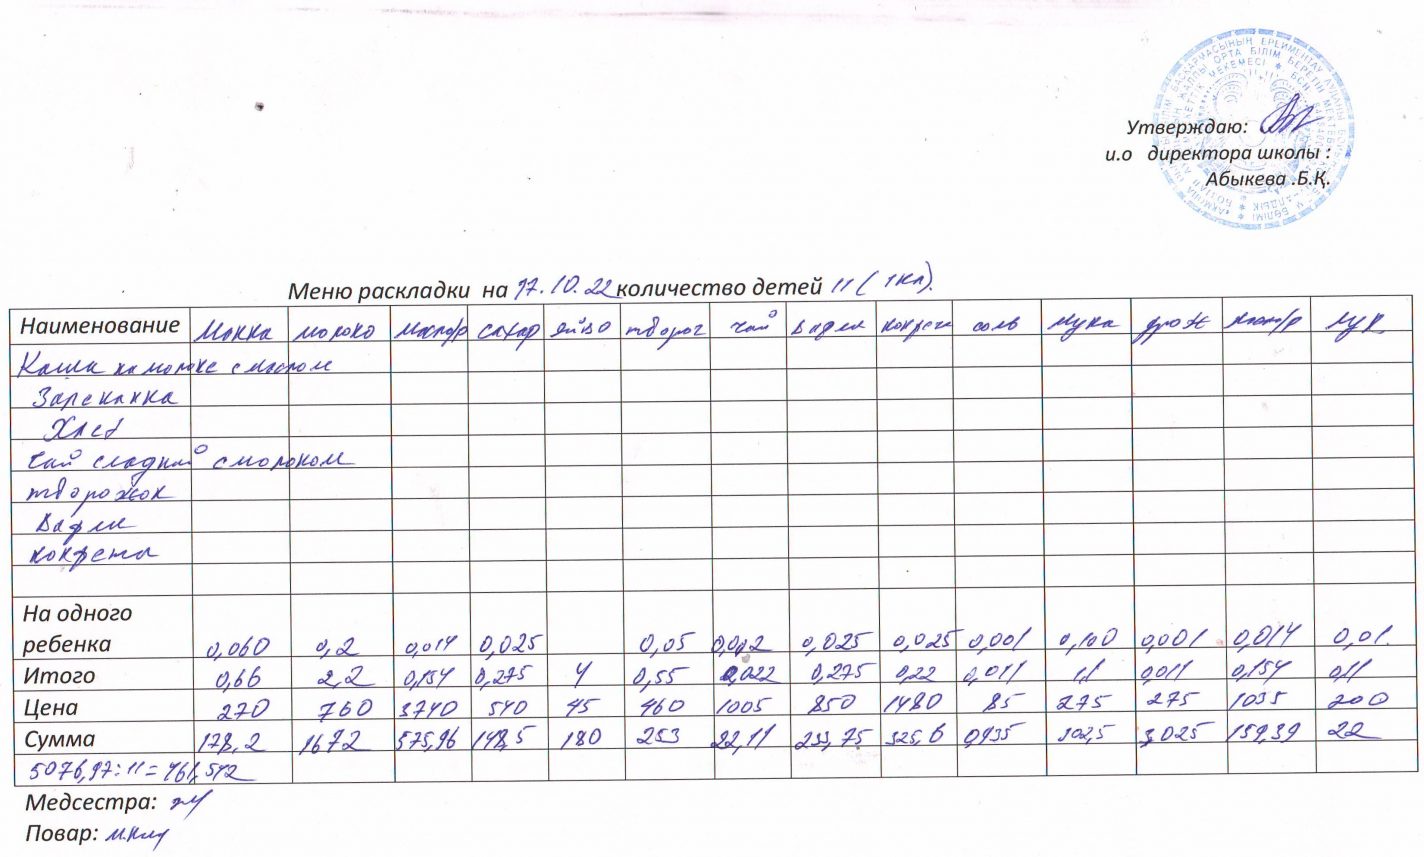 Утверждаю:
и.о директора школы :
Абыкева .Б.Қ.
Меню раскладки на 17.10.22 количество детей 11 ( 1кл).
Наименование Манка молоко Масло/р сахар яйцо творог чай вафли конфета соль мука дрож масл/р лук
Каша на молоке с маслом
Запеканка
Хлеб
Чай сладкий с молоком
творожок
Вафли
конфета
На одного
ребенка 0,060 0,2 0,014 0,025 0,05 0,002 0,025 0,025 0,001 0,100 0,001 0,014 0,01
Итого 0,66 2,2 0,154 0,275 4 0,55 0,022 0,275 0,22 0,011 1,1 0,011 0,154 0,11
Цена 270 760 3740 540 45 460 1005 850 1480 85 275 275 1035 200
Сумма 178,2 1672 575,96 148,5 180 253 22,11 233,75 325,6 0,935 302,5 3,025 159,39 22
5076,97:11=461,542
Медсестра:
Повар: